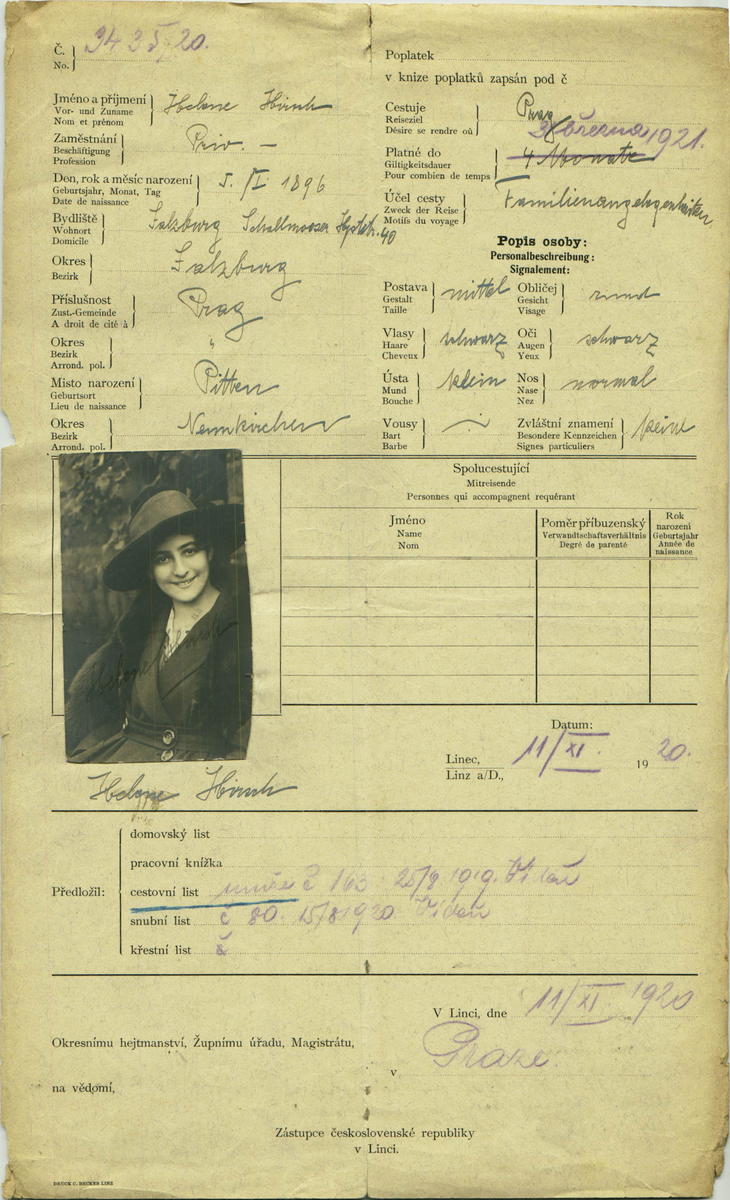 Č.
No.
3435/20.
Jméno a přijmení
Vor- und Zuname
Nom et prénom
Helene Hirsch
Zaměstnání
Beschäftigung
Profession
Priv. —
Den, rok a měsíc narození
Geburtsjahr, Monat, Tag
Date de naissance
5./I. 1896
Bydliště
Wohnort
Domicile
Salzburg Schallmooser Hptstr. 40
Okres
Bezirk
Salzburg
Příslušnost
Zust.-Gemeinde
A droit de cité à
Prag
Okres
Bezirk
Arrond. pol.
"
Misto narození
Geburtsort
Lieu de naissance
Pitten
Okres
Bezirk
Arrond. pol.
Neunkirchen
Poplatek
v knize poplatků zapsán pod č
Cestuje
Reiseziel
Désire se rendre où
Prag
března 1921.
Platné do
Giltigkeitsdauer
Pour combien de temps
4 Monate
Účel cesty
Zweck der Reise
Motifs du voyage
Familienangelegenheiten
Popis osoby:
Personalbeschreibung:
Signalement:
Postava
Gestalt
Taille
mittel
Obličej
Gesicht
Visage
rund
Vlasy
Haare
Cheveux
schwarz
Oči
Augen
Yeux
schwarz
Ústa
Mund
Bouche
klein
Nos
Nase
Nez
normal
Vousy
Bart
Barbe
Zvláštní znamení
Besondere Kennzeichen
Signes particuliers
keine
Spolucestující
Mitreisende
Personnes qui accompagnent requérant
Jméno
Name
Nom
Poměr příbuzenský
Verwandtschaftsverhältnis
Degré de parenté
Rok
narození
Geburtsjahr
Année de
naissance
Helene Hirsch
Datum:
Linec,
Linz a/D.,
11/XI. 1920.
Helene Hirsch
Předložil:
domovský list
pracovní knížka
cestovní list č 163 25/8 1919. Vídeň
snubní list č 80. 15/8 1920 Vídeň
křestní list č
V Linci, dne 11/XI. 1920
Okresnímu hejtmanství, Župnímu úřadu, Magistrátu,
v Praze.
na vědomí,
Zástupce československé republiky
v Linci.
DRUCK C. BECKER LINZ